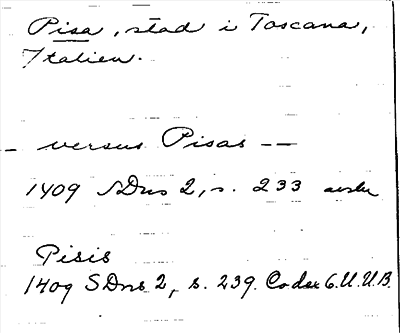 Pisa, stad i Toscana,
Italien.
— versus Pisas ——
1409 SDns 2, s. 233
Pisis
1409 SDns 2, s. 239. Codex 6. U.U.B.